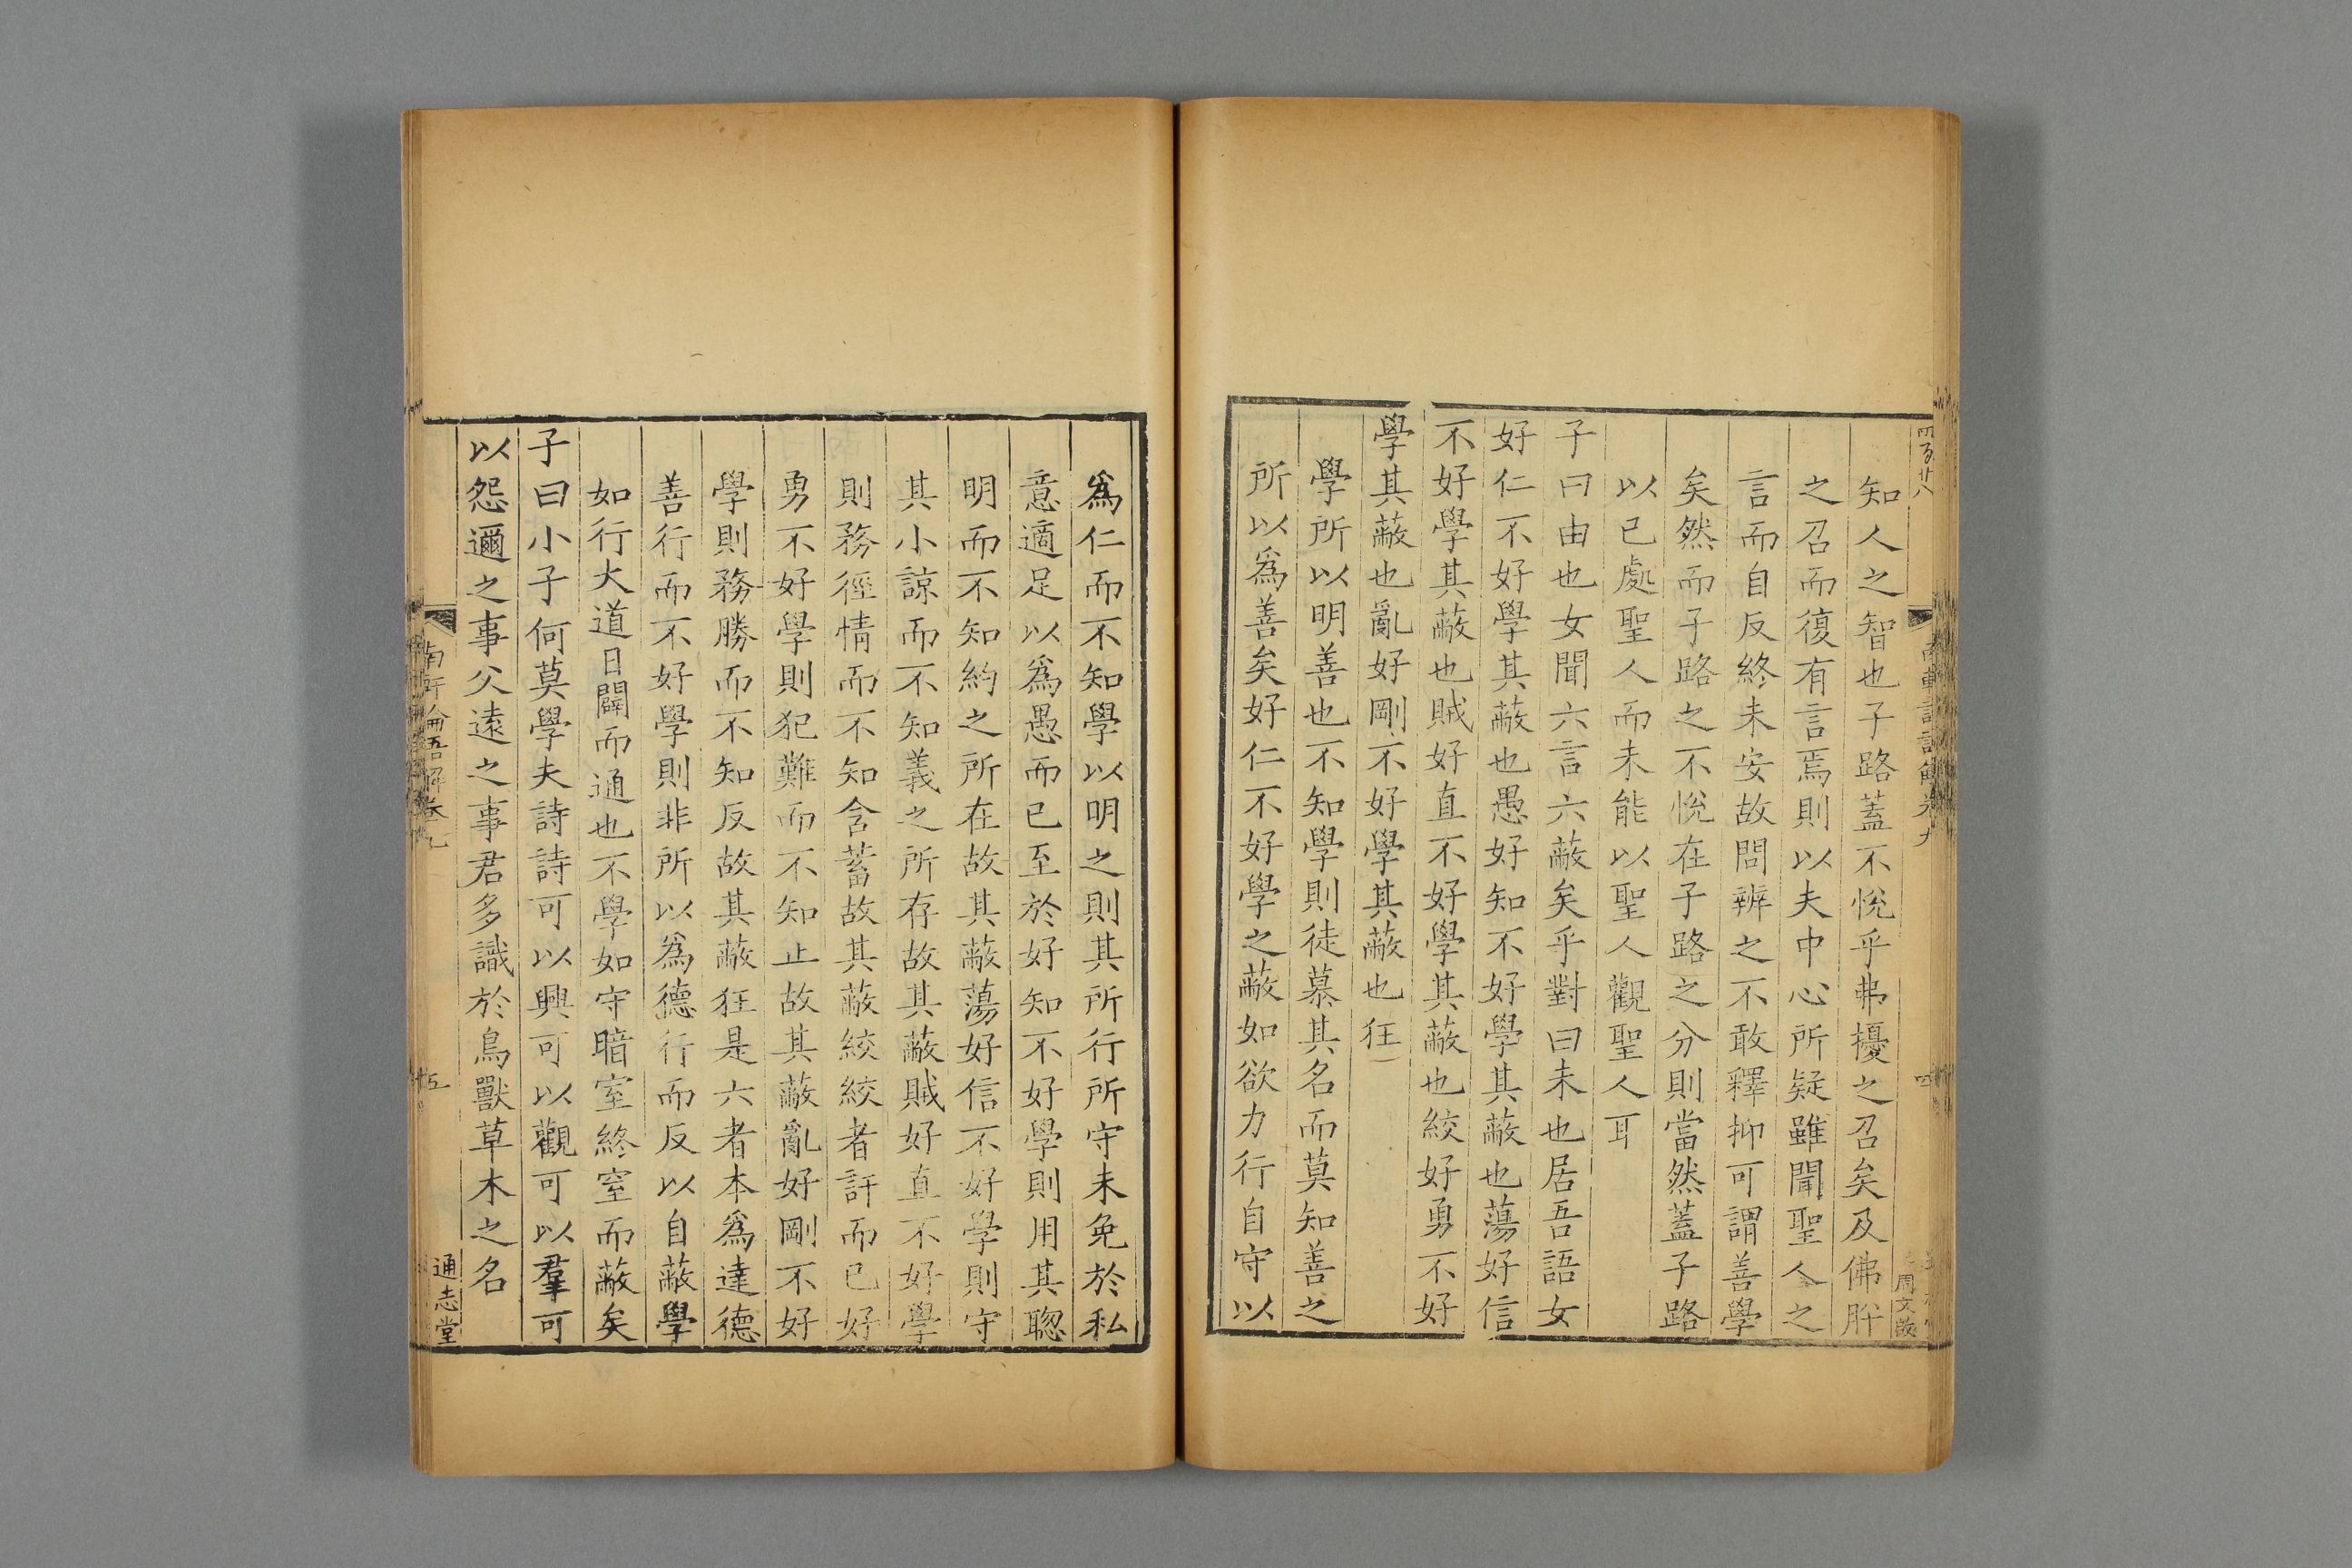 知人之智也子路蓋不悅乎弗擾之召矣及佛肸
之召而復有言焉則以夫中心所疑雖聞聖人之
言而自反終未安故問辨之不敢釋抑可謂善學
矣然而子路之不悅在子路之分則當然蓋子路
以已處聖人而未能以聖人觀聖人耳
子曰由也女聞六言六蔽矣乎對曰未也居吾語女
好仁不好學其蔽也愚好知不好學其蔽也蕩好信
不好學其蔽也賊好直不好學其蔽也絞好勇不好
學其蔽也亂好剛不好學其蔽也狂
學所以明善也不知學則徒慕其名而莫知善之
所以爲善矣好仁不好學之蔽如欲力行自守以
爲仁而不知學以明之則其所行所守未免於私
意適足以爲愚而已至於好知不好學則用其聰
明而不知約之所在故其蔽蕩好信不好學則守
其小諒而不知義之所存故其蔽賊好直不好學
則務徑情而不知含蓄故其蔽絞絞者訐而已好
勇不好學則犯難而不知止故其蔽亂好剛不好
學則務勝而不知反故其蔽狂是六者本爲達德
善行而不好學則非所以爲德行而反以自蔽學
如行大道日闢而通也不學如守暗室終窒而蔽矣
子曰小子何莫學夫詩詩可以興可以觀可以羣可
以怨邇之事父遠之事君多識於鳥獸草木之名
南軒論語解卷九
五
通志堂